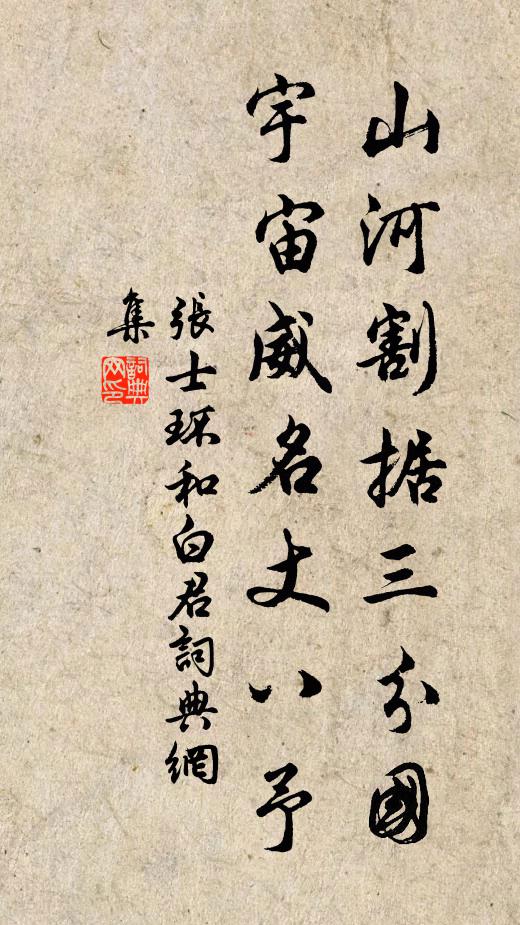 山河割据三分國
宇宙威名丈八予
張士环和白君詞典網
集
詞典
网印